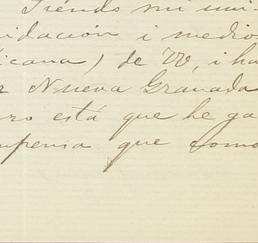 Siendo mi uni-
idación i medio
icana) de VV, i ha
r Nueva Granada
ro está que he ga
mpensa que como